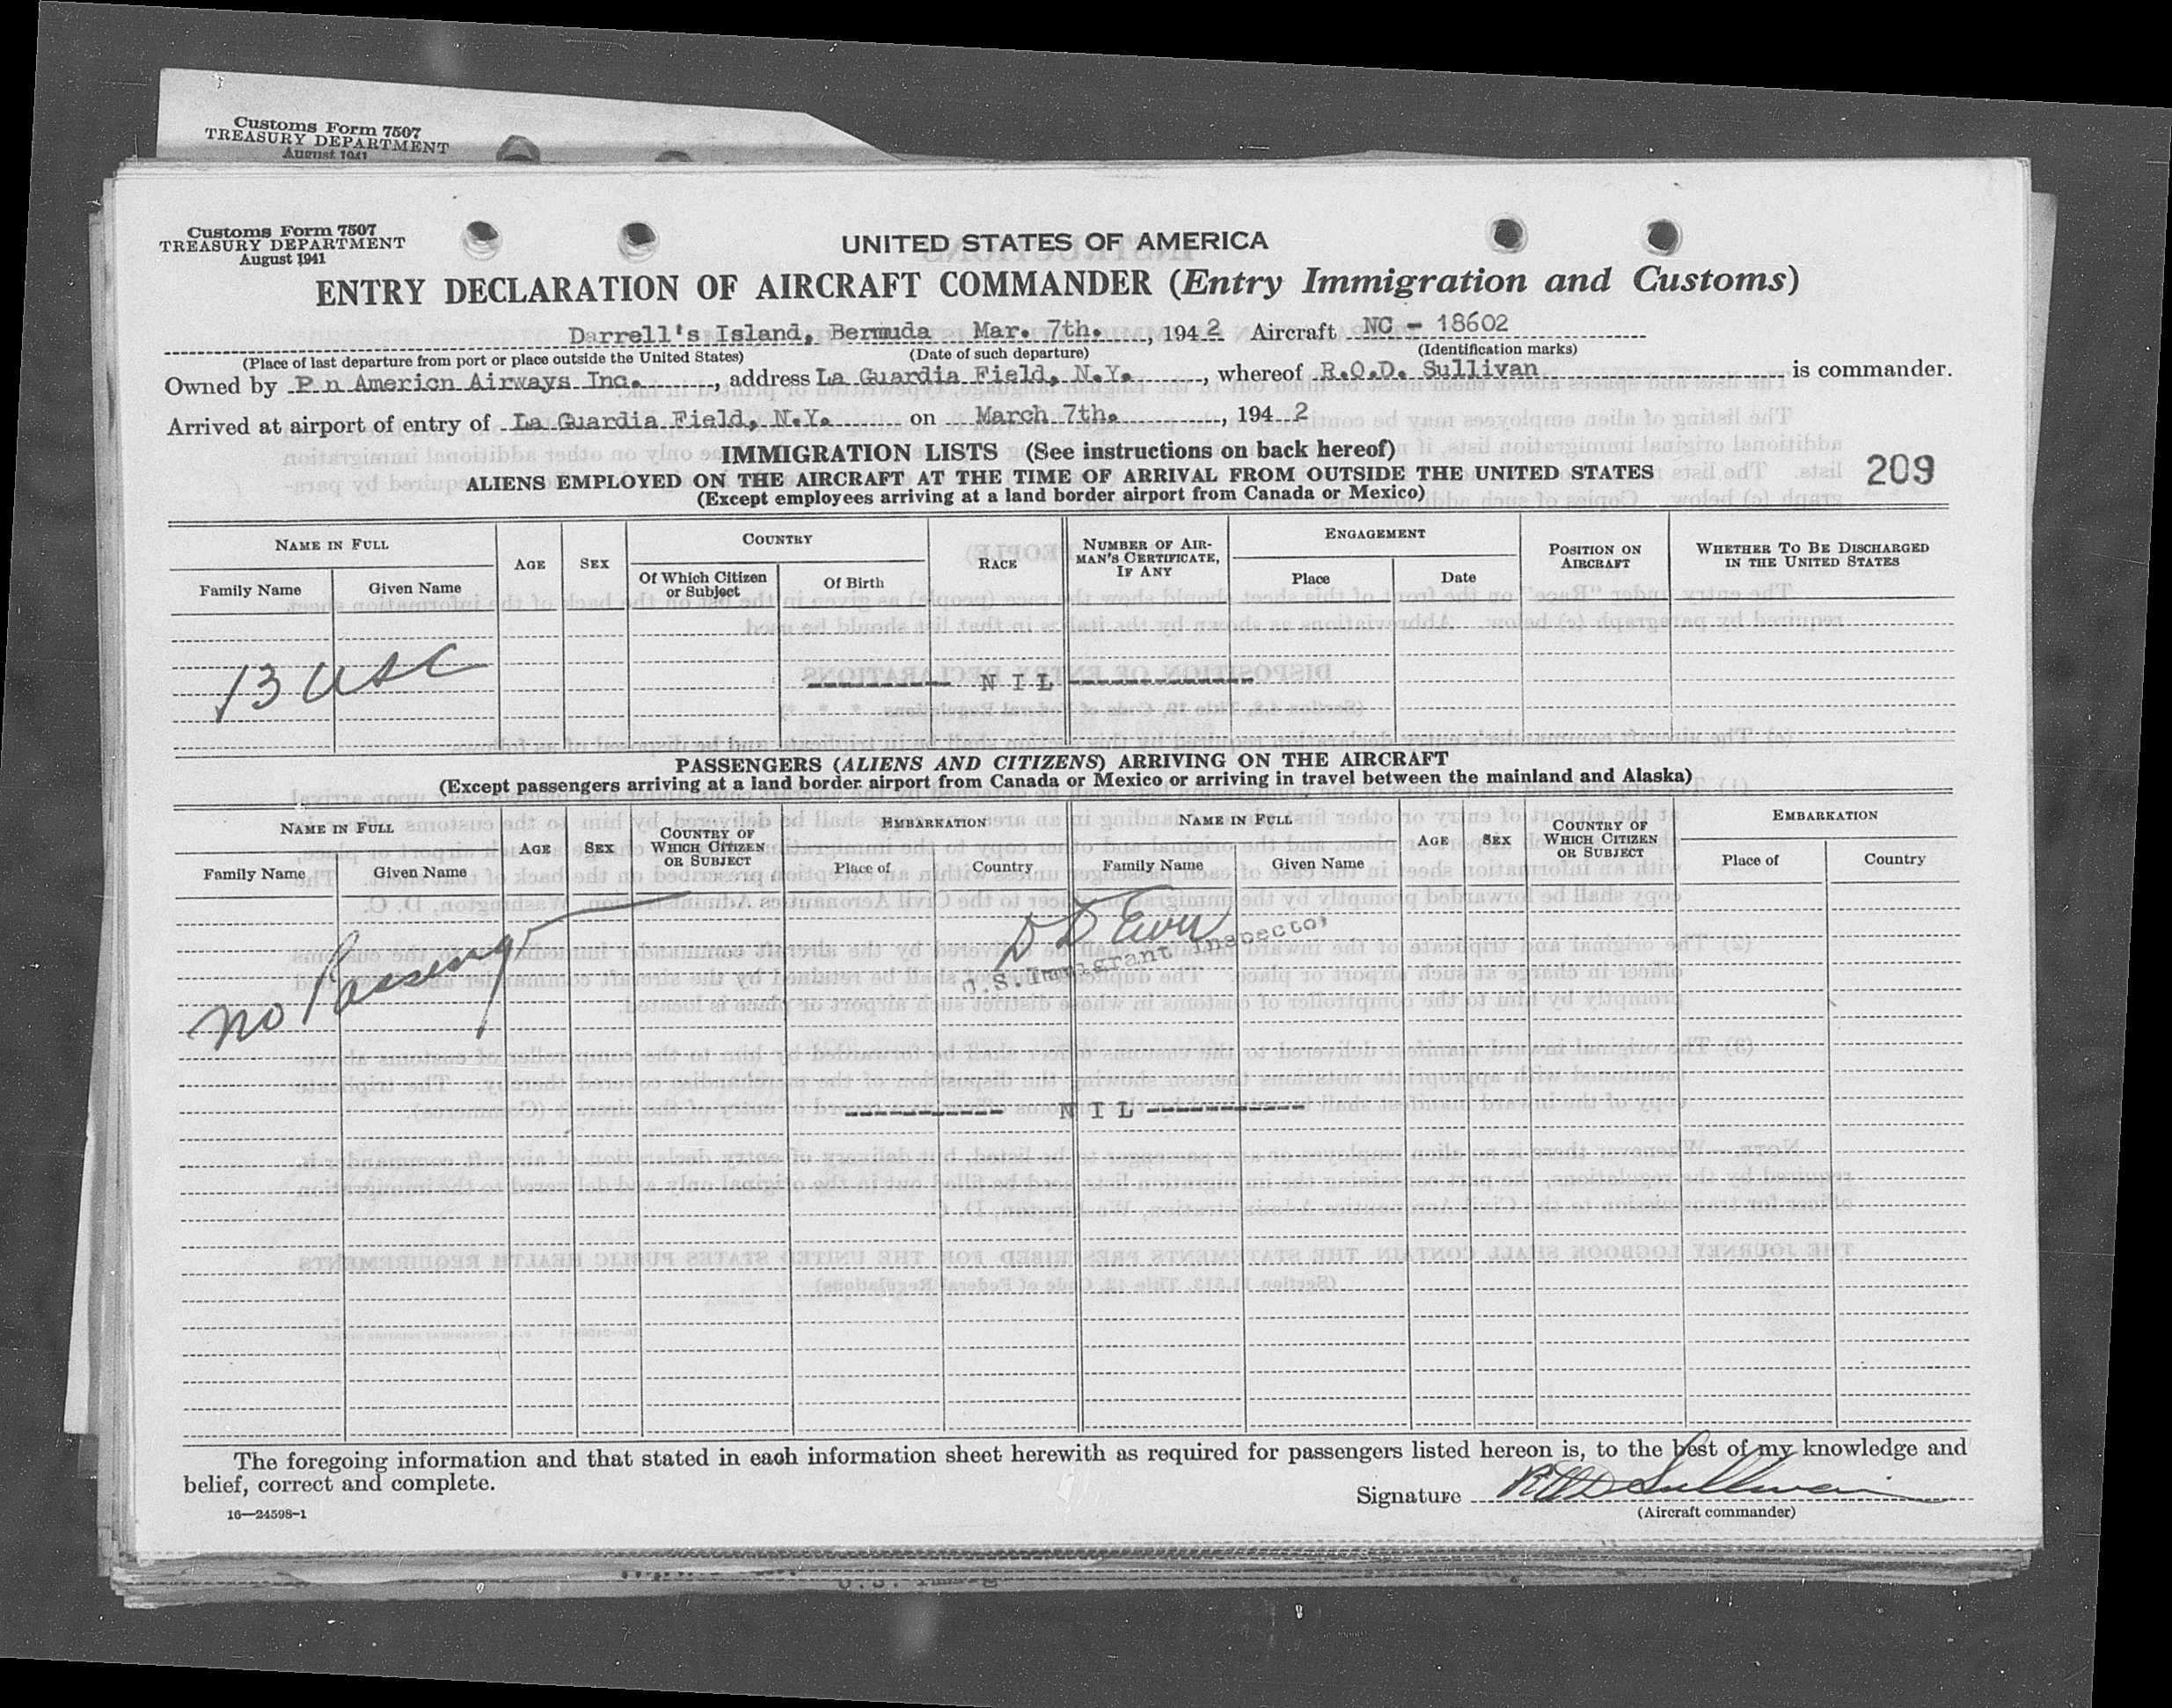 Customs Form 7507
TREASURY DEPARTMENT
August 1941
Customs Form 7507
TREASURY DEPARTMENT
August 1941
UNITED STATES OF AMERICA
ENTRY DECLARATION OF AIRCRAFT COMMANDER (Entry Immigration and Customs)
Darrell's Island, Bermuda Mar. 7th. , 194 2 Aircraft NC - 18602
(Place of last departure from port or place outside the United States) (Date of such departure) (Identification marks)
Owned by P n Americn Airways Inc. , address La Guardia Field, N.Y. , whereof R.O.D. Sullivan is commander.
Arrived at airport of entry of La Guardia Field, N.Y. on March 7th. , 194 2
IMMIGRATION LISTS (See instructions on back hereof)
209
ALIENS EMPLOYED ON THE AIRCRAFT AT THE TIME OF ARRIVAL FROM OUTSIDE THE UNITED STATES
(Except employees arriving at a land border airport from Canada or Mexico)
NAME IN FULL
Family Name
Given Name
AGE
SEX
COUNTRY
Of Which Citizen
or Subject
Of Birth
RACE
NUMBER OF AIR-
MAN'S CERTIFICATE,
IF ANY
ENGAGEMENT
Place
Date
POSITION ON
AIRCRAFT
WHETHER TO BE DISCHARGED
IN THE UNITED STATES
13 USC
---------- N I L -------------
PASSENGERS (ALIENS AND CITIZENS) ARRIVING ON THE AIRCRAFT
(Except passengers arriving at a land border airport from Canada or Mexico or arriving in travel between the mainland and Alaska)
NAME IN FULL
Family Name
Given Name
AGE
SEX
COUNTRY OF
WHICH CITIZEN
OR SUBJECT
EMBARKATION
Place of
Country
NAME IN FULL
Family Name
Given Name
AGE
SEX
COUNTRY OF
WHICH CITIZEN
OR SUBJECT
EMBARKATION
Place of
Country
U.S. Immigrant Inspector
no Passengr
----------- N I L -----------
The foregoing information and that stated in each information sheet herewith as required for passengers listed hereon is, to the best of my knowledge and
belief, correct and complete.
Signature R O D Sullivan
(Aircraft commander)
16—24598-1